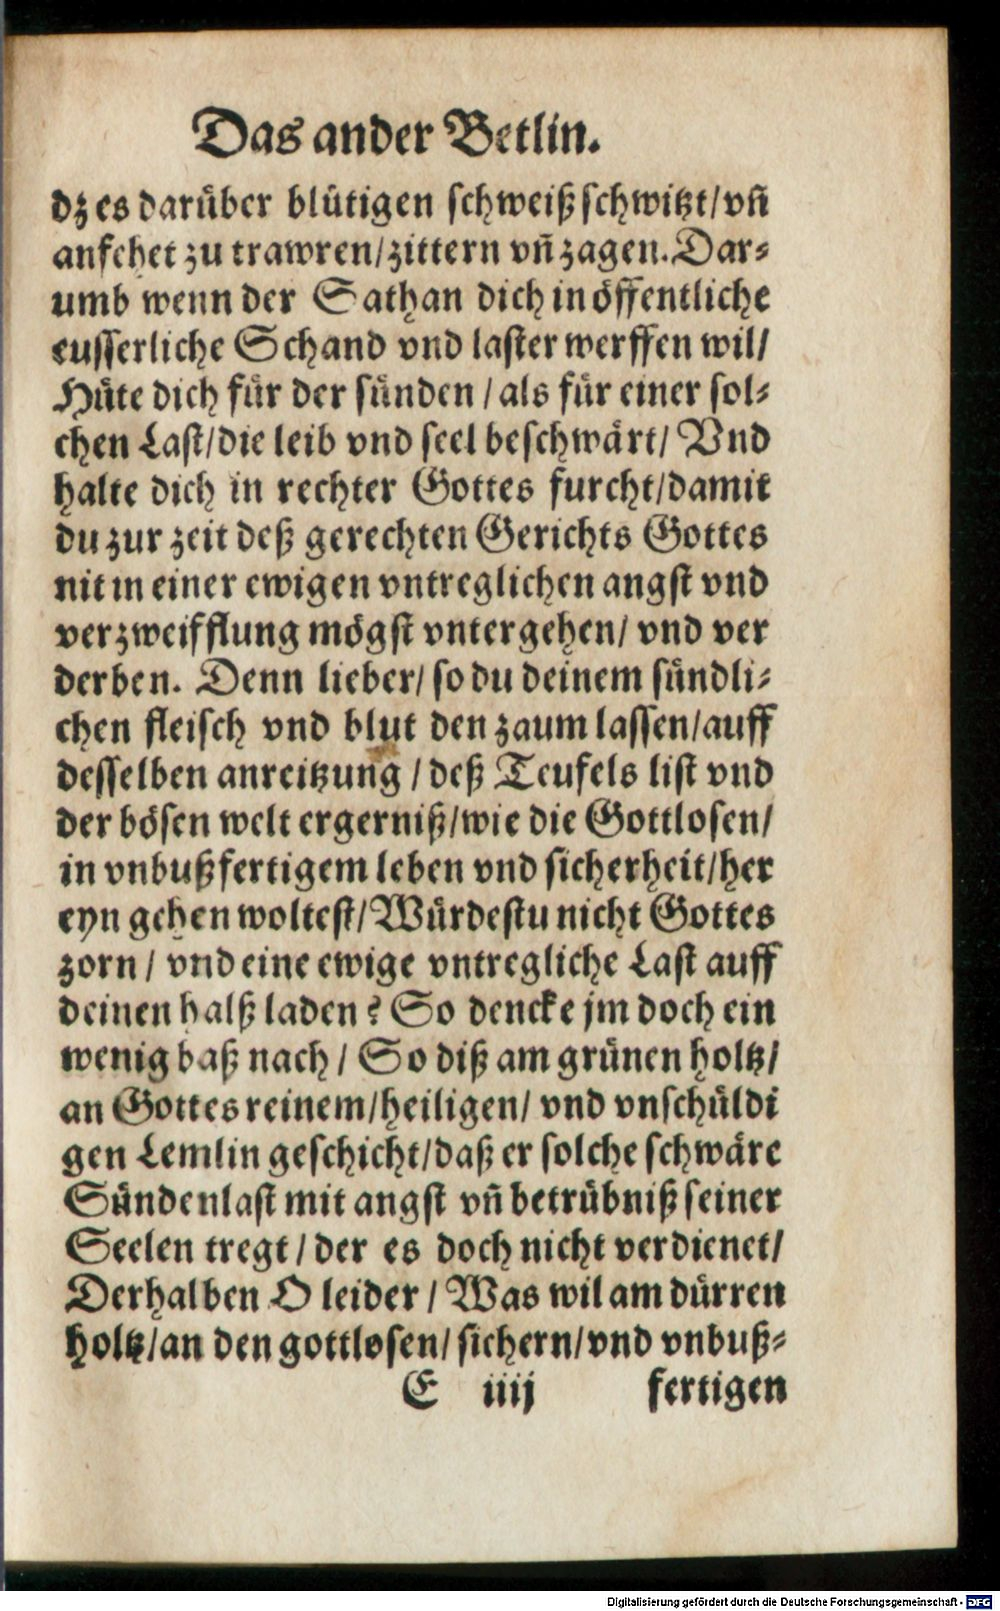 Das ander Betlin.
dz es darüber blütigen schweiß schwitzt/ vñ
anfehet zu trawren/ zittern vñ zagen. Dar⸗
umb wenn der Sathan dich in öffentliche
eusserliche Schand vnd laster werffen wil/
Hüte dich für der sünden / als für einer sol⸗
chen Last/ die leib vnd seel beschwärt/ Vnd
halte dich in rechter Gottes furcht/ damit
du zur zeit deß gerechten Gerichts Gottes
nit in einer ewigen vntreglichen angst vnd
verzweifflung mögst vntergehen/ vnd ver
derben. Denn lieber/ so du deinem sündli⸗
chen fleisch vnd blut den zaum lassen/ auff
desselben anreitzung / deß Teufels list vnd
der bösen welt ergerniß/ wie die Gottlosen/
in vnbußfertigem leben vnd sicherheit/ her
eyn gehen woltest/ Würdestu nicht Gottes
zorn / vnd eine ewige vntregliche Last auff
deinen halß laden? So dencke jm doch ein
wenig baß nach / So diß am grünen holtz/
an Gottes reinem/ heiligen/ vnd vnschüldi
gen Lemlin geschicht/ daß er solche schwäre
Sündenlast mit angst vñ betrübniß seiner
Seelen tregt / der es doch nicht verdienet/
Derhalben O leider / Was wil am dürren
holtz/ an den gottlosen/ sichern/ vnd vnbuß⸗
E iiij fertigen
Digitalisierung gefördert durch die Deutsche Forschungsgemeinschaft - DFG